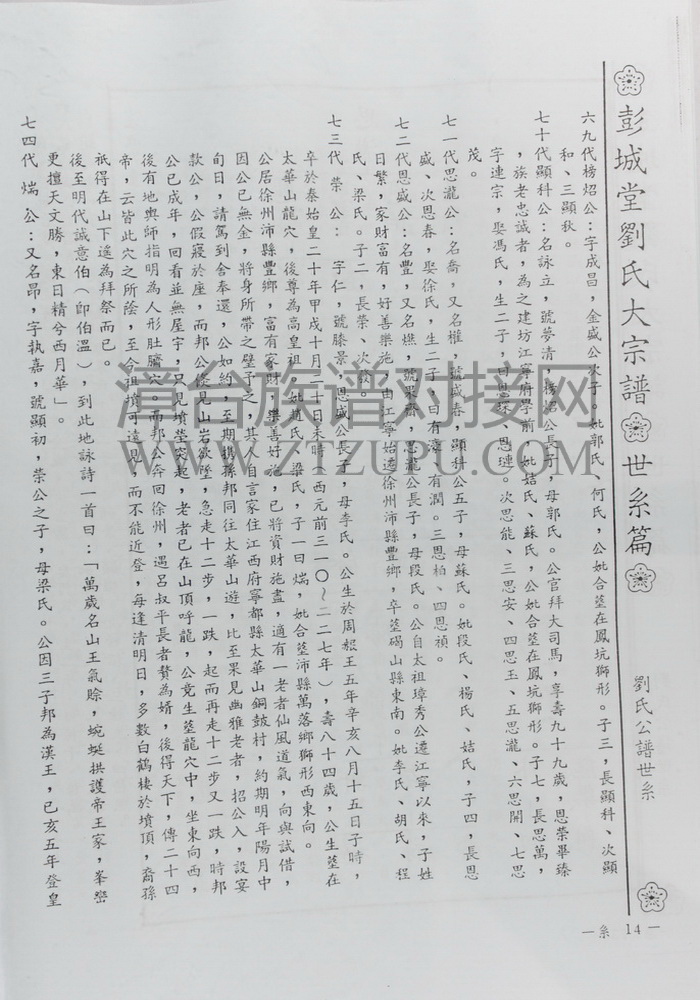 彭城堂劉氏大宗譜 世系篇
劉氏公譜世系
一系 14一
六九代榜炤公:字成昌,金盛公次子。妣郭氏、何氏,公妣合塟在鳳坑獅形。子三,長顯科、次顯
和、三顯秋。
七十代顯科公:名詠立,號夢清,榜炤公長子,母郭氏。公官拜大司馬,享壽九十九歲,恩榮畢臻
,族老忠誠者,為之建坊江寧府學前。妣姞氏、蘇氏,公妣合塟在鳳坑獅形。子七,長思萬,
字連宗,娶馮氏,生二子,曰恩琛、恩璉。次思能、三思安、四思玉、五思瀧、六思開、七思
茂。
七一代思瀧公:名喬,又名權,號盛春,顯科公五子,母蘇氏。妣段氏、楊氏、姞氏,子四,長恩
盛、次恩春,娶徐氏,生二子、曰有濠、有潤。三恩柏、四恩禎。
七二代恩盛公:名豐,又名爃,號東齋,思瀧公長子,母段氏。公自太祖璋秀公遷江寧以來,子姓
日繁,家財富有,好善樂施,由江寧始遷徐州沛縣豐鄉,卒塟碭山縣東南。妣李氏、胡氏、程
氏、梁氏。子二,長榮、次發。
七三代 榮 公:字仁,號滕景,恩盛公長子,母李氏。公生於周赧王五年辛亥八月十五日子時,
卒於秦始皇二十年甲戌十月二十日未時(西元前三一〇~二二七年),壽八十四歲,公生塟在
太華山龍穴,後尊為高皇祖。妣趙氏、梁氏,子一曰煓,妣合塟沛縣萬落鄉獅形西東向。
公居徐州沛縣豐鄉,富有家財,樂善好施,已將資財施盡,適有一老者仙風道氣,向與試借,
因公已無金,將身所帶之璧予之,其人自言家住江西府寧都縣太華山銅鼓村,約期明年陽月中
旬日,請駕到舍奉還,公如約,至期携孫邦同往太華山遊,比至果見幽雅老者,招公入,設宴
款公,公假寢於座,而邦公從見山岩欲墜,急走十二步,一跌,起而再走十二步又一跌,時邦
公已成年,回看並無屋宇,只見墳塋突起,老者已在山頂呼龍,公竟生塟龍穴中,坐東向西,
後有地輿師指明為人形肚臍穴,而邦公奔回徐州,遇呂叔平長者贅為婿,後得天下,傳二十四
帝,云皆此穴之所蔭,至今祖墳可遠見,而不能近登,每逢清明日,多數白鶴棲於墳頂,裔孫
祇得在山下遙為拜祭而已。
後至明代誠意伯(即伯溫),到此地詠詩一首曰:「萬歲名山王氣賒,蜿蜒拱護帝王家,峯巒
更擅天文勝,東日精兮西月華」。
七四代 煓 公:又名昂,字執嘉,號顯初,榮公之子,母梁氏。公因三子邦為漢王,己亥五年登皇
清台族谱对接网
WWW.ZTZUPU.COM